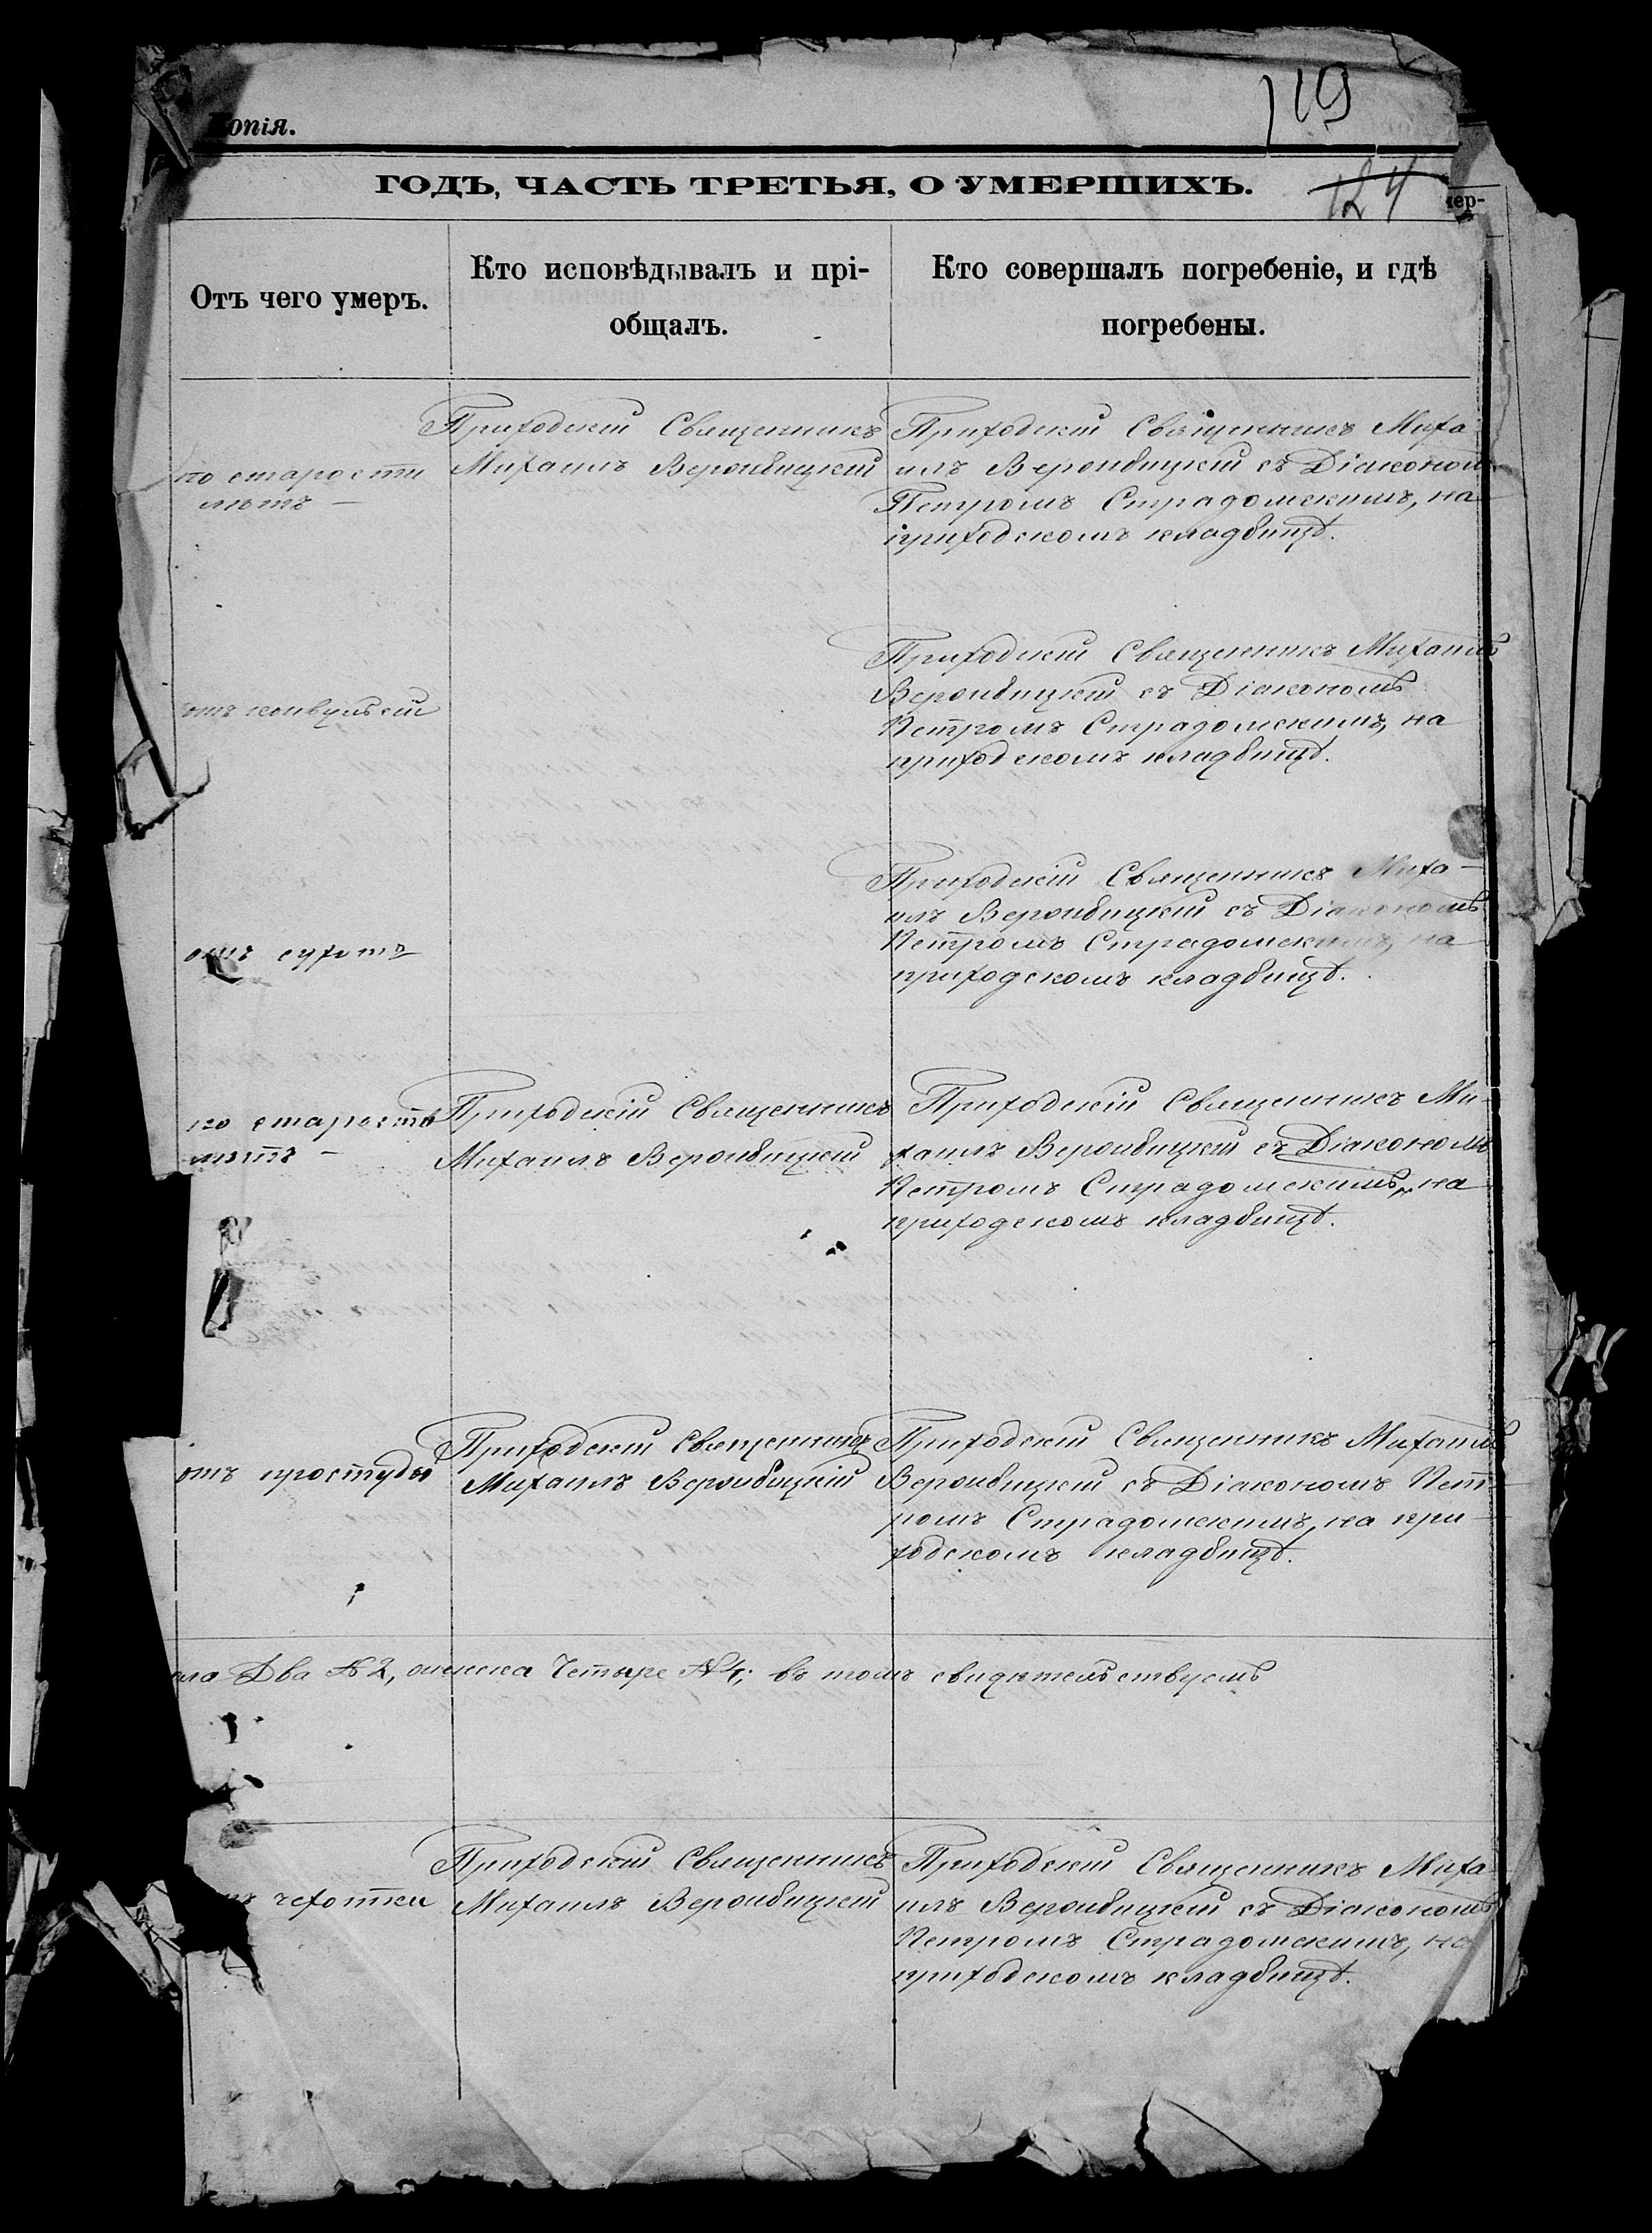 опія.
119
ГОДЪ, ЧАСТЬ ТРЕТЬЯ, О УМЕРШИХЪ.
124
мер-
Отъ чего умеръ.
Кто исповѣдывалъ и прі-
общалъ.
Кто совершалъ погребеніе, и гдѣ
погребены.
по старости
лѣтъ —
Приходскій Священникъ
Михаилъ Вероивицкій
Приходскій Священникъ Миха
илъ Вероивицкій съ Діакономъ
Петромъ Страдомскимъ, на
приходскомъ кладбищѣ.
отъ конвульсіи
Приходскій Священникъ Михаилъ
Вероивицкій съ Діакономъ
Петромъ Страдомскимъ, на
приходскомъ кладбищѣ.
отъ сухотъ
Приходскій Священникъ Миха-
илъ Вероивицкій съ Діакономъ
Петромъ Страдомскимъ, на
приходскомъ кладбищѣ.
по старости
лѣтъ —
Приходскій Священникъ
Михаилъ Вероивицкій
Приходскій Священникъ Ми-
хаилъ Вероивицкій съ Діакономъ
Петромъ Страдомскимъ, на
приходскомъ кладбищѣ.
отъ простуды
Приходскій Священникъ
Михаилъ Вероивицкій
Приходскій Священникъ Михаилъ
Вероивицкій съ Діакономъ Пет-
ромъ Страдомскимъ, на при-
ходскомъ кладбищѣ.
ола Два № 2, женска Четыре № 4; въ томъ свидѣтельствуемъ
чехотки
Приходскій Священникъ
Михаилъ Вероивицкій
Приходскій Священникъ Миха
илъ Вероивицкій съ Діакономъ
Петромъ Страдомскимъ, на
приходскомъ кладбищѣ.